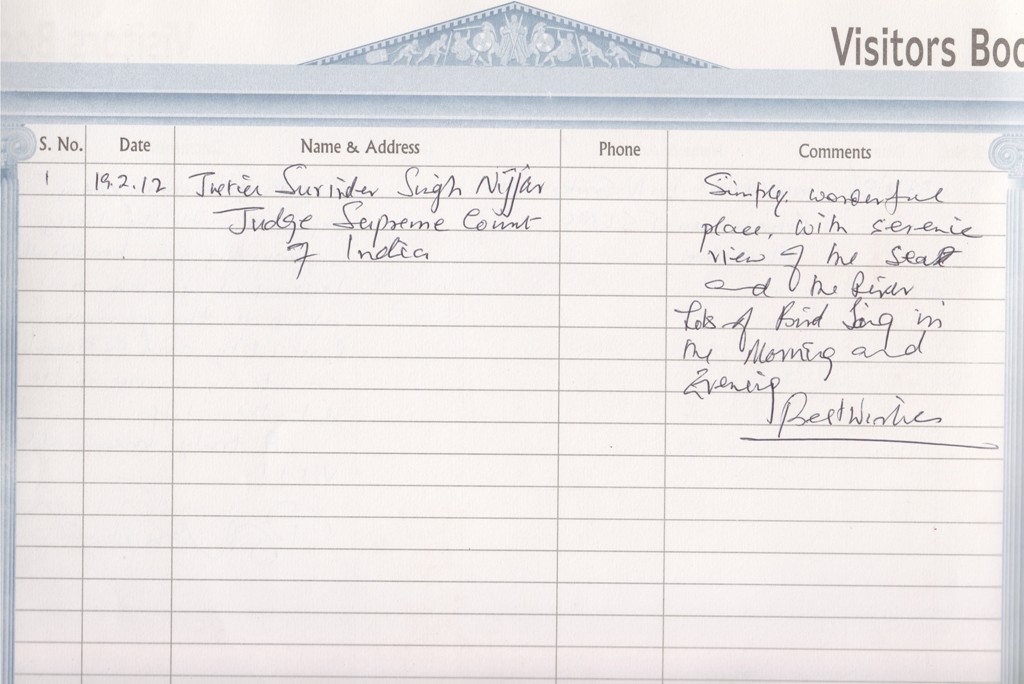 Visitors Boo
S. No. Date Name & Address Phone Comments
1 19.2.12 Justice Surinder Singh Nijjar
Judge Supreme Court
of India
Simply wonderful
place, with serenic
view of the Sea
and the River
Lots of Bird Song in
the Morning and
Evening
Best Wishes